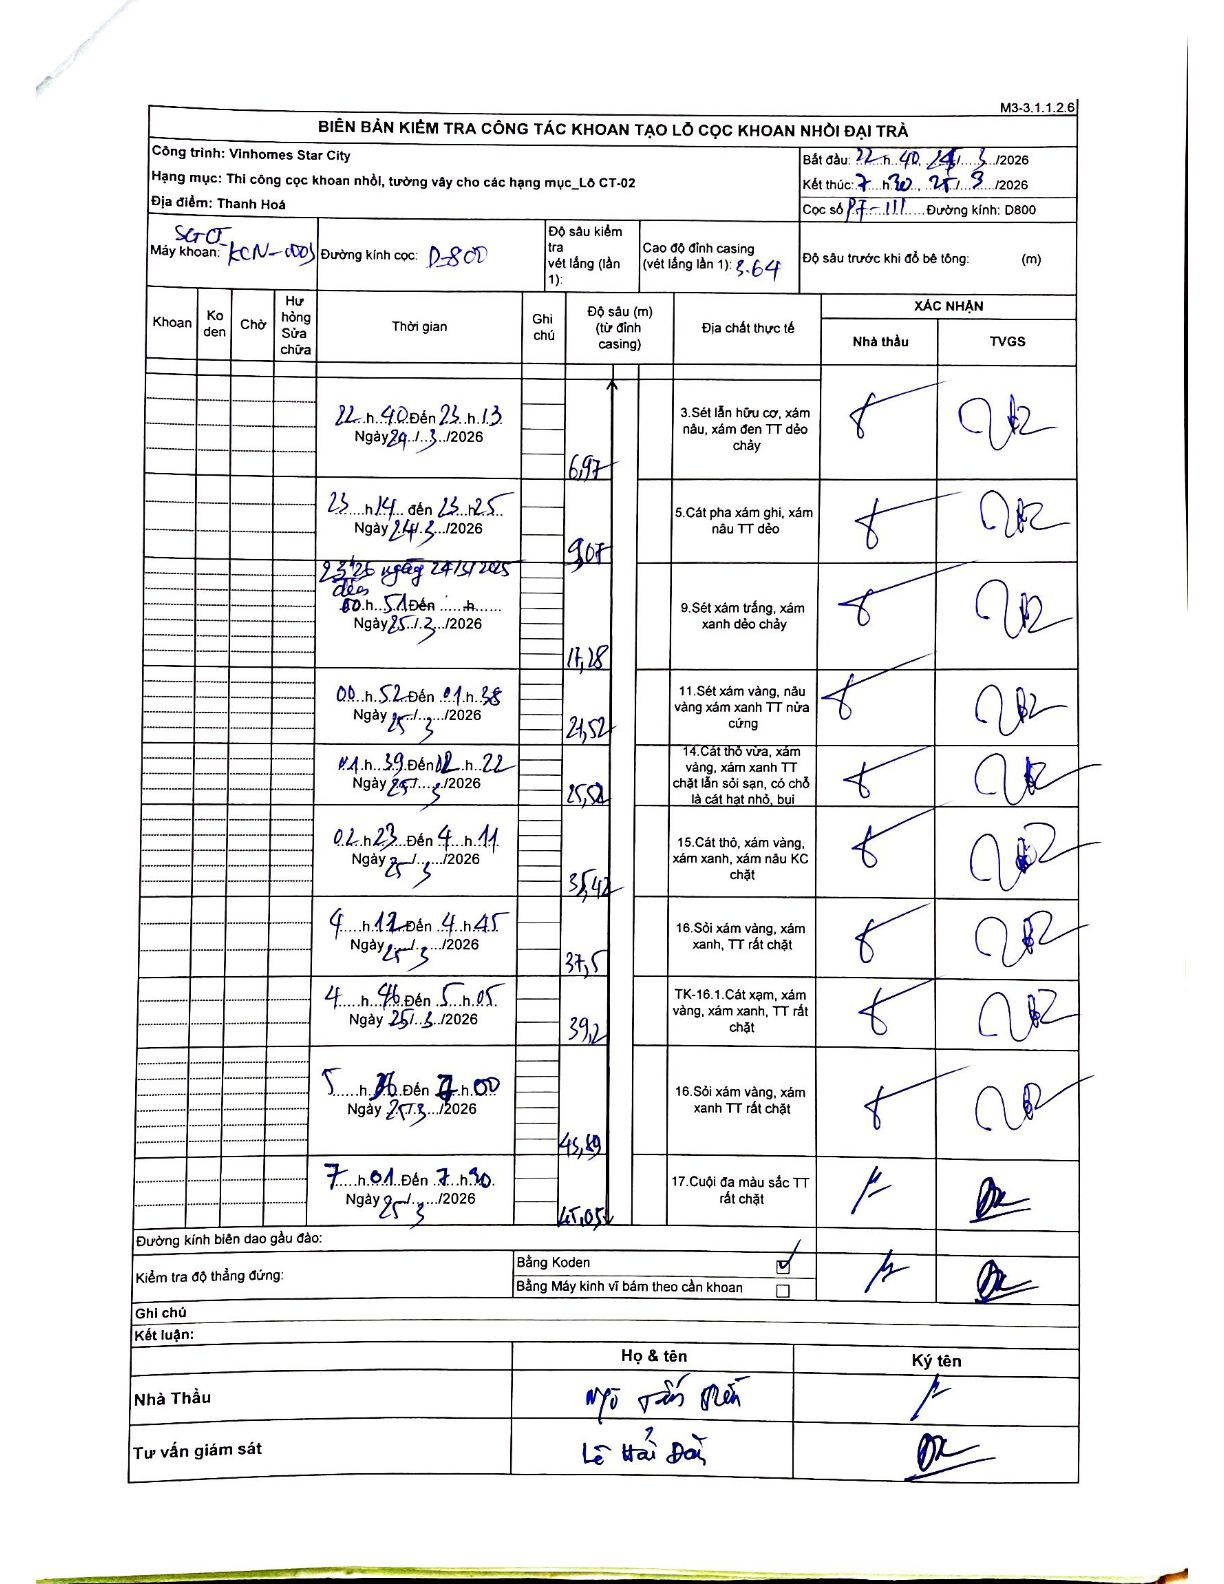 M3-3.1.1.2.6
BIÊN BẢN KIỂM TRA CÔNG TÁC KHOAN TẠO LỖ CỌC KHOAN NHỒI ĐẠI TRÀ
Công trình: Vinhomes Star City
Hạng mục: Thi công cọc khoan nhồi, tường vây cho các hạng mục_Lô CT-02
Địa điểm: Thanh Hoá
Bắt đầu: 22 h 40, 24/ 3 /2026
Kết thúc: 7 h 30, 25/ 3 /2026
Cọc số P7-111 Đường kính: D800
Máy khoan:
Đường kính cọc: D-800
Độ sâu kiểm
tra
vét lắng (lần
1):
Cao độ đỉnh casing
(vét lắng lần 1): 3.64
Độ sâu trước khi đổ bê tông: (m)
Khoan
Ko
den
Chờ
Hư
hỏng
Sửa
chữa
Thời gian
Ghi
chú
Độ sâu (m)
(từ đỉnh
casing)
Địa chất thực tế
XÁC NHẬN
Nhà thầu
TVGS
22 h 40 Đến 23 h 13
Ngày 24/ 3 /2026
6,97
3.Sét lẫn hữu cơ, xám
nâu, xám đen TT dẻo
chảy
23 h 14 đến 23 h 25
Ngày 24/ 3 /2026
9,07
5.Cát pha xám ghi, xám
nâu TT dẻo
23h26 ngày 24/3/2025
đến
00 h 51 Đến h
Ngày 25/ 3 /2026
17,28
9.Sét xám trắng, xám
xanh dẻo chảy
00 h 52 Đến 01 h 38
Ngày 25/ 3 /2026
21,52
11.Sét xám vàng, nâu
vàng xám xanh TT nửa
cứng
01 h 39 Đến 02 h 22
Ngày 25/ 3 /2026
25,52
14.Cát thô vừa, xám
vàng, xám xanh TT
chặt lẫn sỏi sạn, có chỗ
là cát hạt nhỏ, bụi
02 h 23 Đến 4 h 11
Ngày 25/ 3 /2026
35,42
15.Cát thô, xám vàng,
xám xanh, xám nâu KC
chặt
4 h 12 Đến 4 h 45
Ngày 25/ 3 /2026
37,5
16.Sỏi xám vàng, xám
xanh, TT rất chặt
4 h 46 Đến 5 h 05
Ngày 25/ 3 /2026
39,2
TK-16.1.Cát xạm, xám
vàng, xám xanh, TT rất
chặt
5 h 06 Đến 7 h 00
Ngày 25/ 3 /2026
43,89
16.Sỏi xám vàng, xám
xanh TT rất chặt
7 h 01 Đến 7 h 30
Ngày 25/ 3 /2026
45,05
17.Cuội đa màu sắc TT
rất chặt
Đường kính biên dao gầu đào:
Kiểm tra độ thẳng đứng:
Bằng Koden
Bằng Máy kinh vĩ bám theo cần khoan
Ghi chú
Kết luận:
Họ & tên
Ký tên
Nhà Thầu
Ngô Tiến
Tư vấn giám sát
Lê Hải